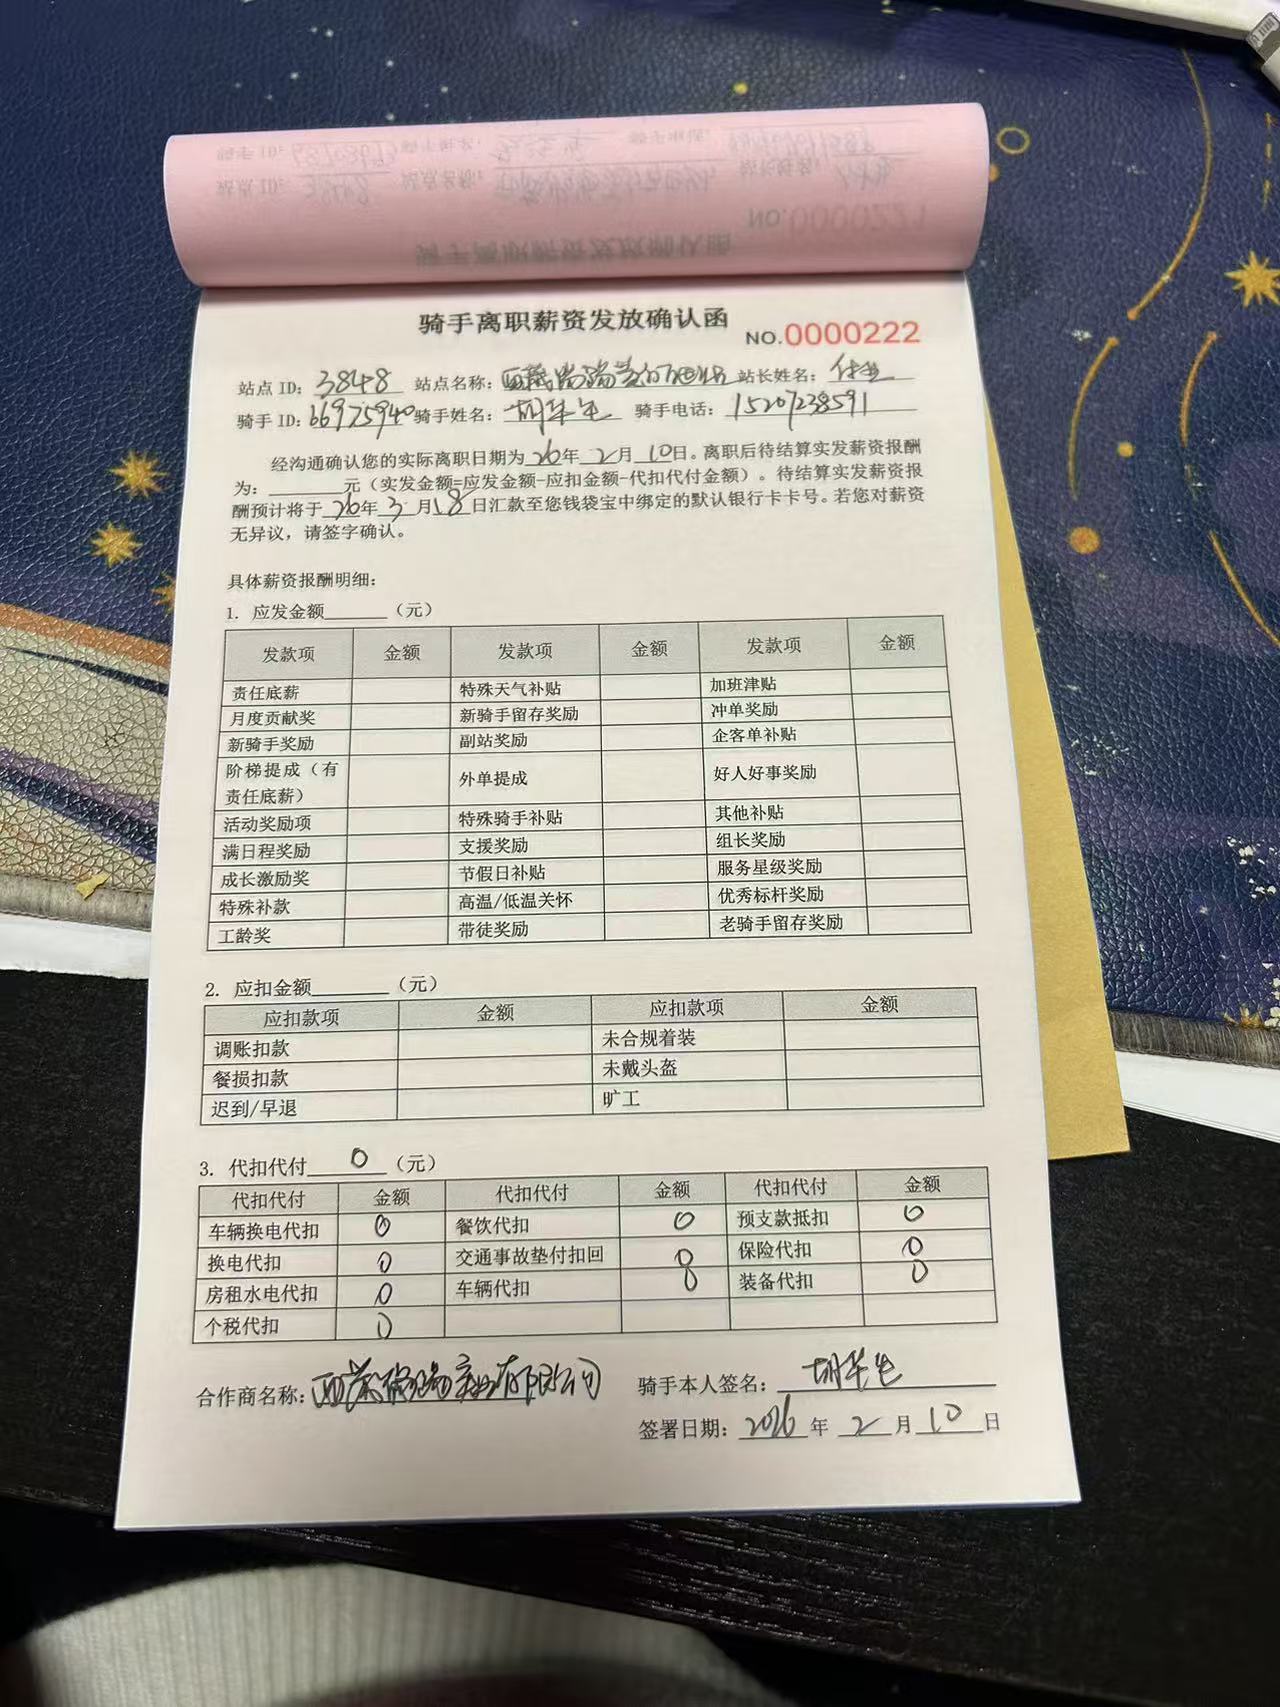 骑手离职薪资发放确认函 NO.0000222
站点 ID: 3848 站点名称: 西藏 站长姓名:
骑手 ID: 66975940 骑手姓名: 胡华生 骑手电话: 15207238591
经沟通确认您的实际离职日期为26年2月10日。离职后待结算实发薪资报酬
为:______元(实发金额=应发金额-应扣金额-代扣代付金额)。待结算实发薪资报
酬预计将于26年3月18日汇款至您钱袋宝中绑定的默认银行卡卡号。若您对薪资
无异议,请签字确认。
具体薪资报酬明细:
1. 应发金额______(元)
发款项 金额 发款项 金额 发款项 金额
责任底薪 特殊天气补贴 加班津贴
月度贡献奖 新骑手留存奖励 冲单奖励
新骑手奖励 副站奖励 企客单补贴
阶梯提成(有
责任底薪) 外单提成 好人好事奖励
活动奖励项 特殊骑手补贴 其他补贴
满日程奖励 支援奖励 组长奖励
成长激励奖 节假日补贴 服务星级奖励
特殊补款 高温/低温关怀 优秀标杆奖励
工龄奖 带徒奖励 老骑手留存奖励
2. 应扣金额______(元)
应扣款项 金额 应扣款项 金额
调账扣款 未合规着装
餐损扣款 未戴头盔
迟到/早退 旷工
3. 代扣代付 0 (元)
代扣代付 金额 代扣代付 金额 代扣代付 金额
车辆换电代扣 0 餐饮代扣 0 预支款抵扣 0
换电代扣 0 交通事故垫付扣回 0 保险代扣 0
房租水电代扣 0 车辆代扣 0 装备代扣 0
个税代扣 0
合作商名称: 西藏 有限公司 骑手本人签名: 胡华生
签署日期: 2026 年 2 月 10 日